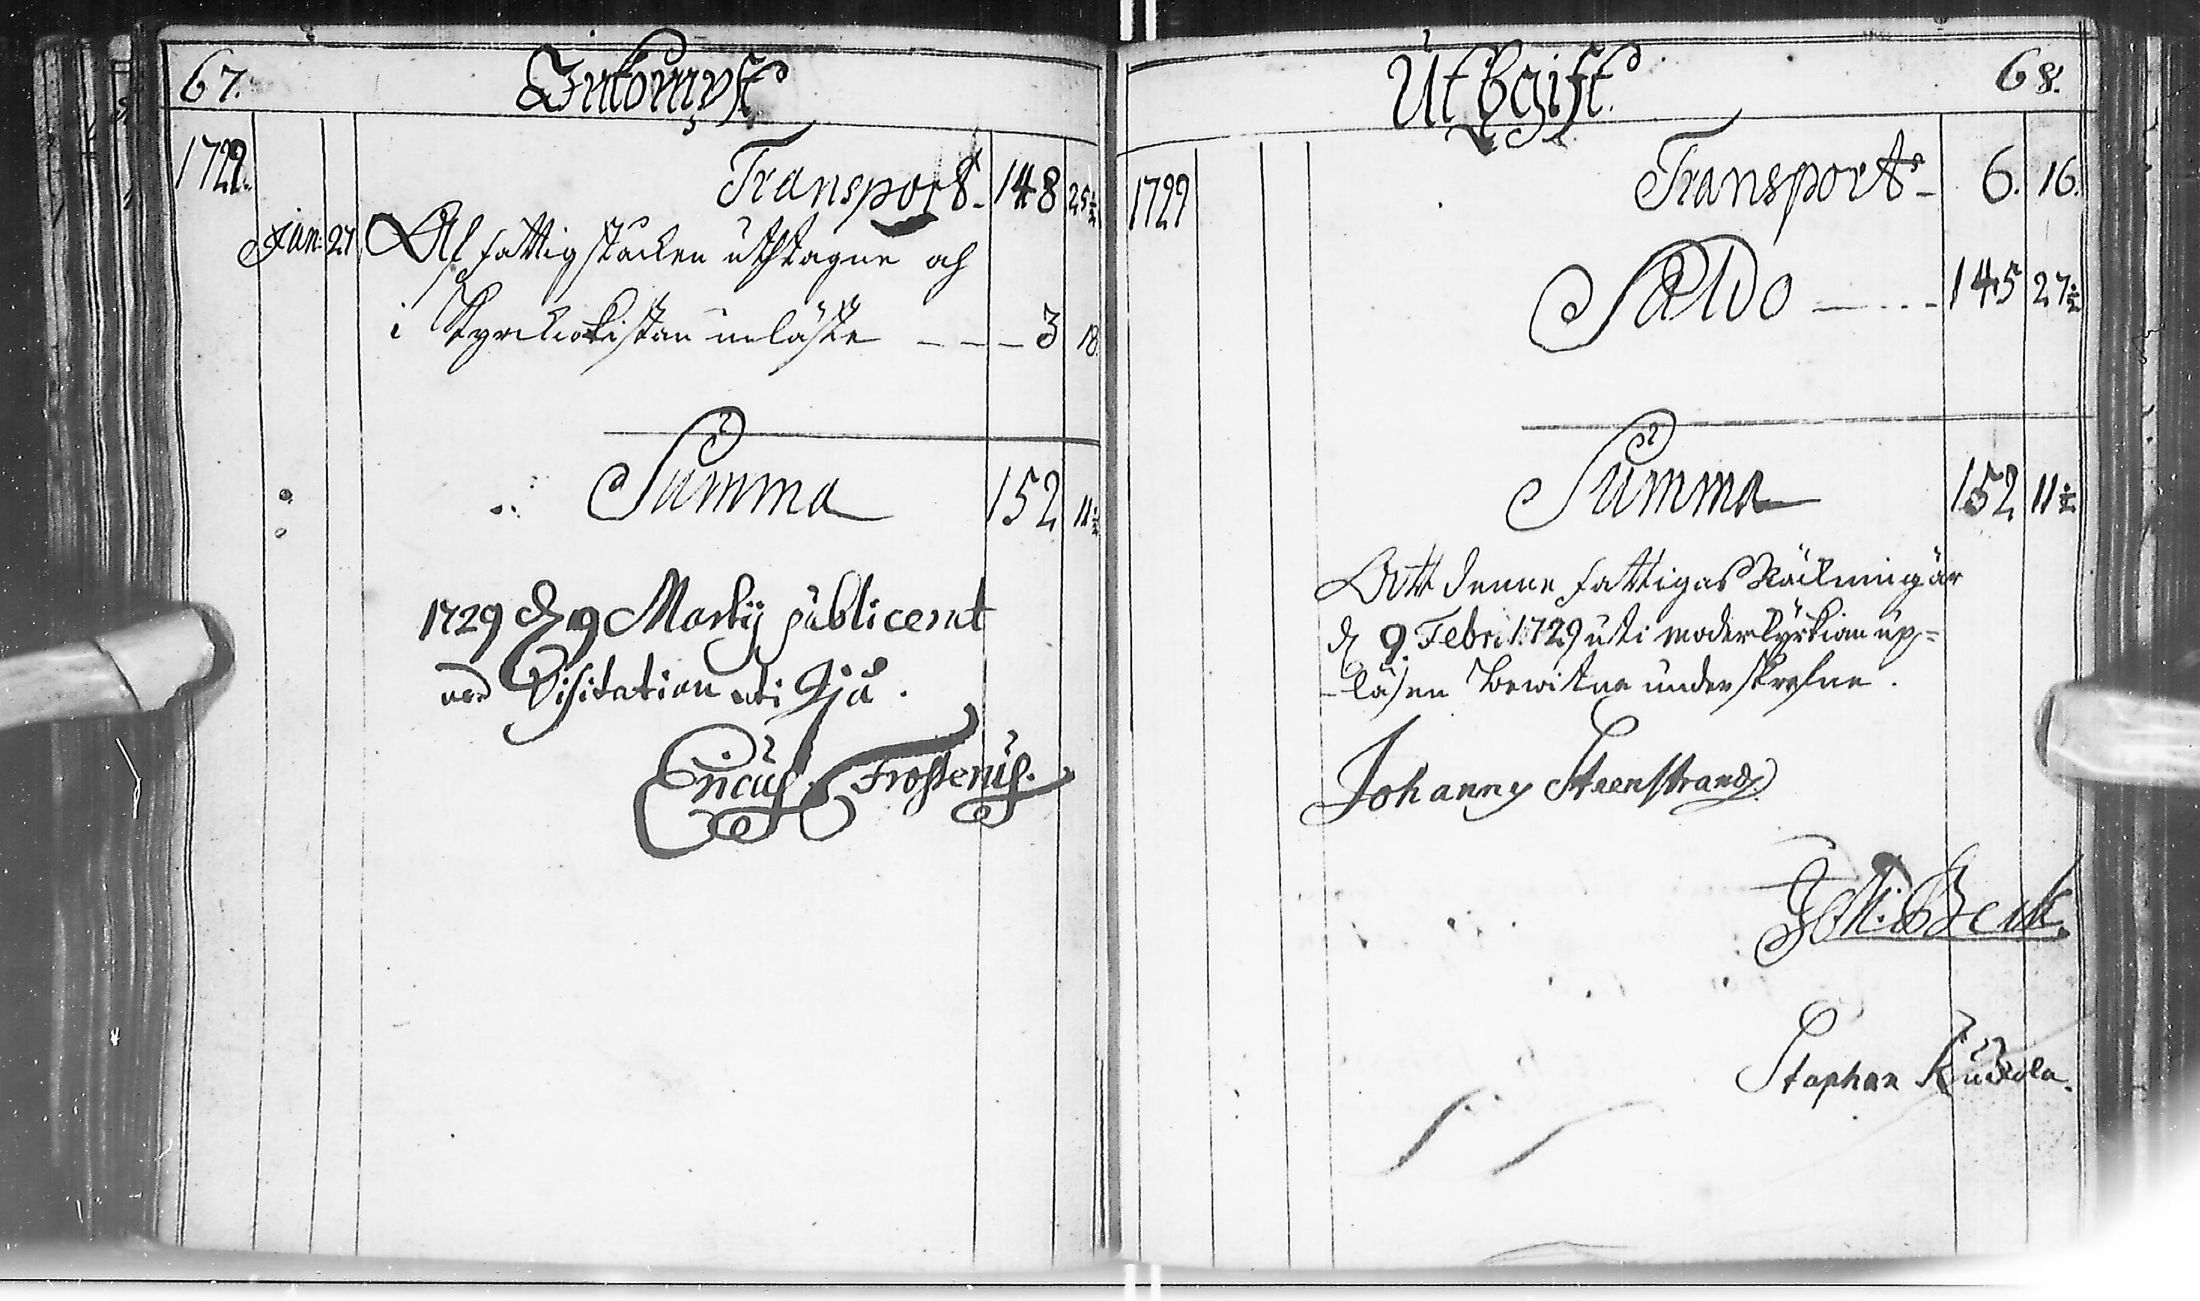 67. Inkompst
1729.
Transport. 148 25½
Jan: 27 Af fattigstocken uthtagne och
i Kyrkiokistan inlåste — — — 3 18.
Summa 152 11½
1729 d 9 Martij publicerat
wed Visitation uti
Ericus Frostenus.
Utgift. 68.
1729
Transport — 6. 16.
Saldo — 145 27½
Summa 152 11½
Att denne fattigas Räckning är
d 9 Febr: 1729 uti moderkyrkian up-
läsen bewitne underskrefne.
Johannes Steenstrand
Beck.
Staphan